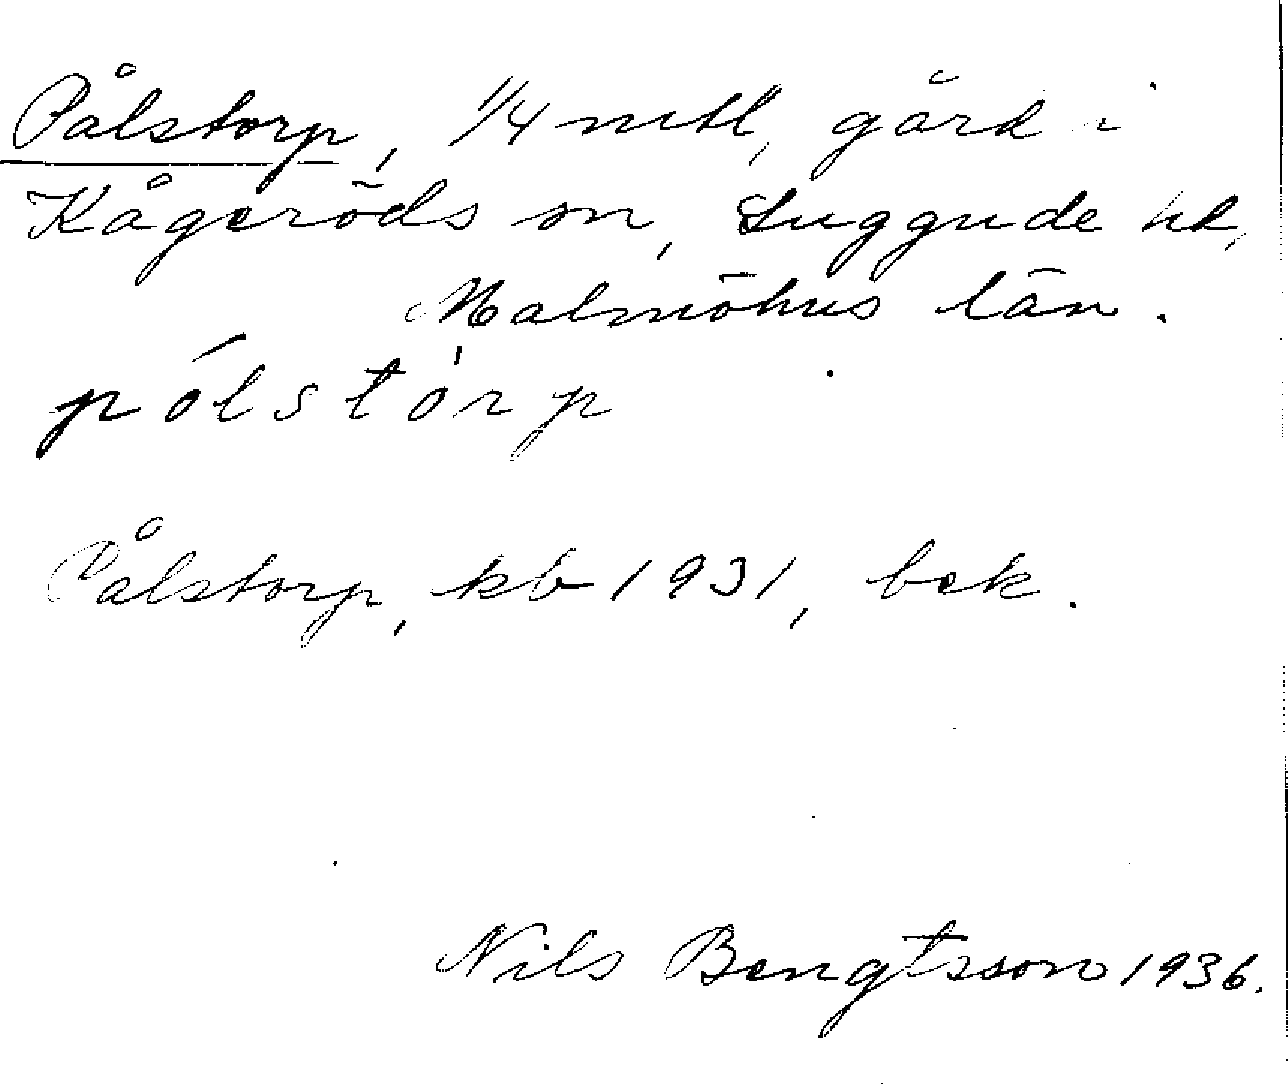 Pålstorp, 1/4 mtl, gård i
Kågeröds sn, Luggude hd,
Malmöhus län.
pólstòrp
Pålstorp, kb 1931, bok.
Nils Bengtsson 1936.